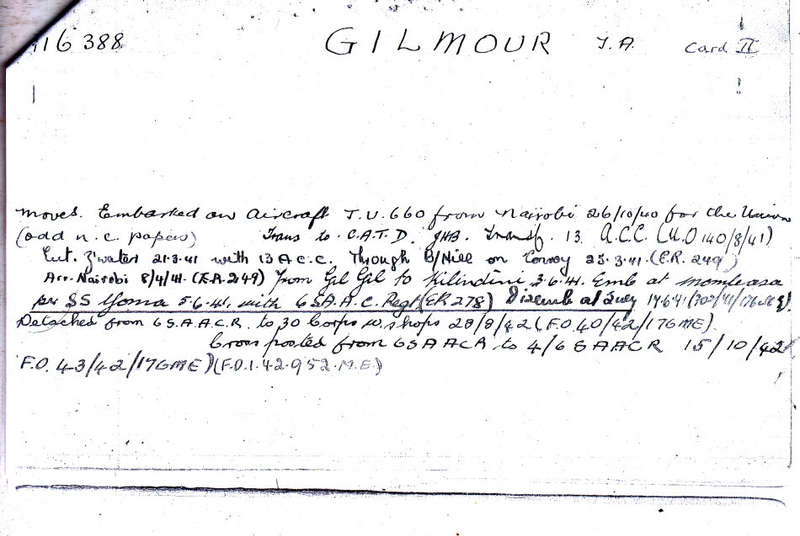 916388 GILMOUR T.A. Card II
Moves. Embarked on Aircraft T.U. 660 from Nairobi 26/10/40 for the Union
(add n.c. papers) Trans to C.A.T.D. JHB. Transf. 13. A.C.C. (U.O 140/8/41)
Ent. Z'water 21.3.41 with 13 A.C.C. Through B/Nile on Convoy 25.3.41. (E.R. 249)
Arr. Nairobi 8/4/41. (E.R. 249) from Gil Gil to Kilindini 3.6.41. Emb at Mombasa
per SS Yoma 5.6.41. with 6 S.A.A.C. Regt (ER 278) Disemb at Suez 14.6.41
Detached from 6 S.A.A.C.R. to 30 Corps w.shops 28/8/42 (F.O 40/42/176ME).
Cross posted from 6 S A A C R to 4/6 S A A C R 15/10/42
F.O. 43/42/176ME) (F.O.1.42.952.M.E.)